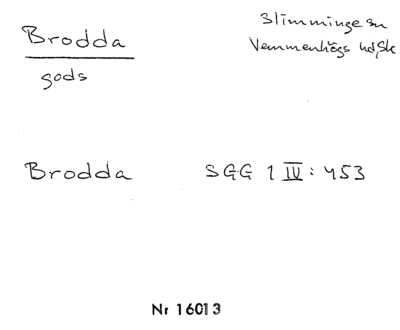 Brodda
gods
Slimminge sn
Vemmenhögs hd, Sk
Brodda SGG 1 IV: 453
Nr 16013